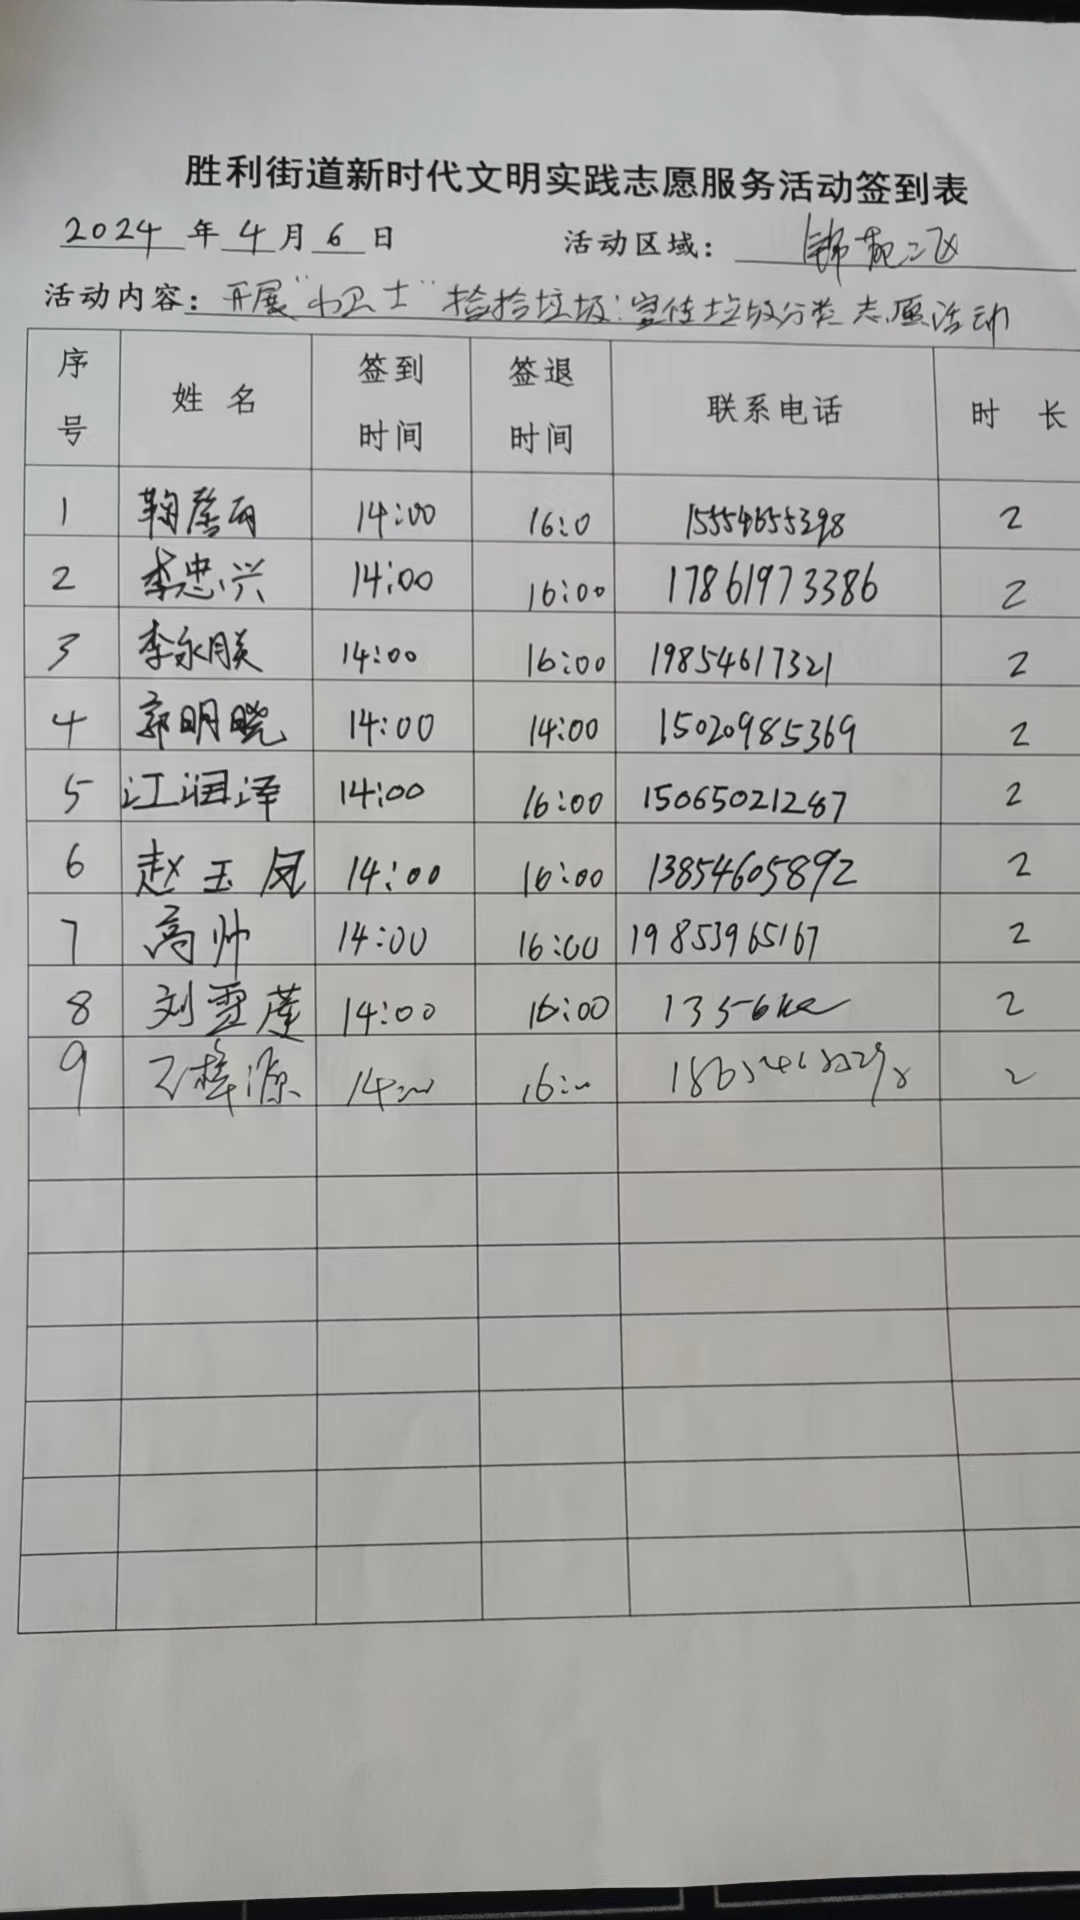 胜利街道新时代文明实践志愿服务活动签到表
2024 年 4 月 6 日 活动区域: 锦苑二区
活动内容: 开展"小卫士"捡拾垃圾 宣传垃圾分类志愿活动
序号 姓名 签到时间 签退时间 联系电话 时长
1 鞠 14:00 16:0 15554655398 2
2 李忠兴 14:00 16:00 17861973386 2
3 李永朕 14:00 16:00 19854617321 2
4 郭明晓 14:00 14:00 15020985369 2
5 江润泽 14:00 16:00 15065021287 2
6 赵玉凤 14:00 16:00 13854605892 2
7 高帅 14:00 16:00 19853965167 2
8 刘雪莲 14:00 16:00 2
9 梓源 14: 16: 2